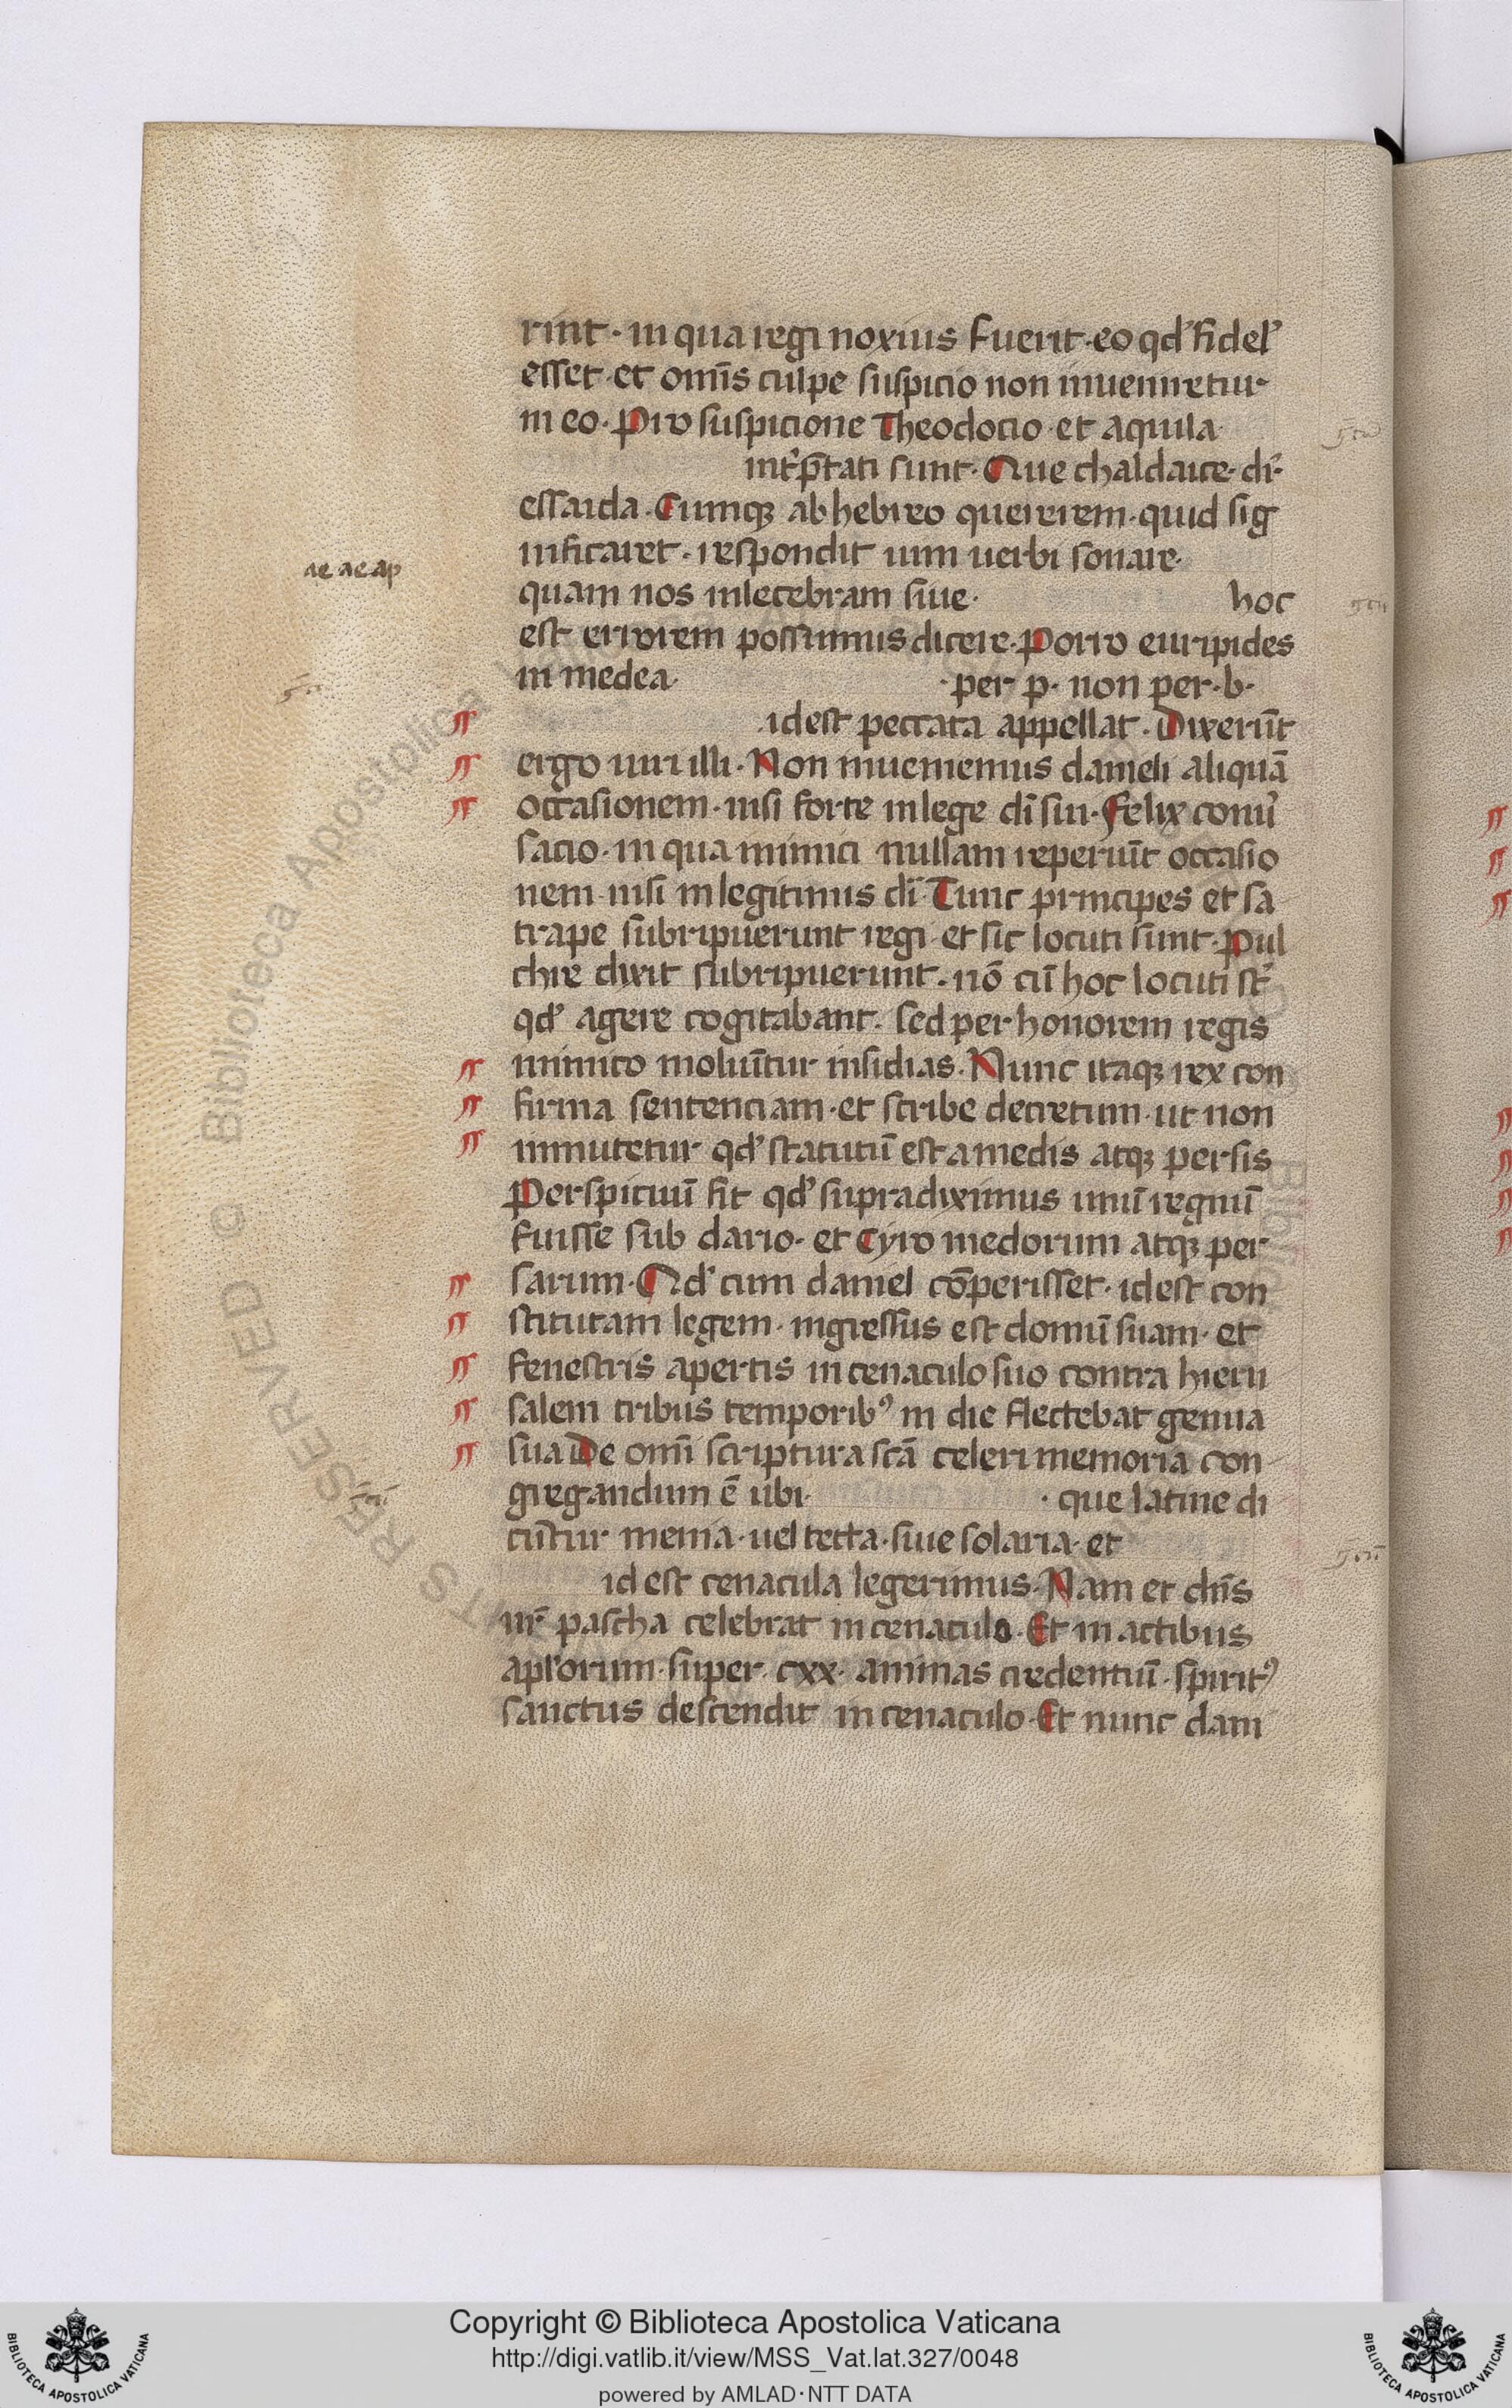 rint · in qua regi noxius fuerit · eo qd' fidel'
esset · et om̄is culpe suspicio non inueniretur
in eo · Pro suspicione Theodocio · et aquila ·
int'p̄tati sunt · Que chaldaice · dr̄ ·
essaida · Cumqꝫ ab hebreo quererem · quid sig
nificaret · respondit uim uerbi sonare ·
ae ae ap
quam nos inlecebram siue · hoc
est errorem possumus dicere · Porro euripides
in medea · · per p · non per · b ·
· idest peccata appellat · Dixerūt
ergo uiri illi · Non inueniemus danieli aliquā
occasionem · nisi forte in lege dī sui · Felix conu'
satio · in qua inimici nullam reperiūt occasio
nem · nisi in legitimis dī · Tunc principes et sa
trape subripuerunt regi · et sic locuti sunt · Pul
chre dixit subripuerunt · nō cū hoc locuti st'
qd' agere cogitabant · sed per honorem regis
inimico moliūtur insidias · Nunc itaqꝫ rex con
firma sentenciam · et scribe decretum · ut non
inmutetur qd' statutū est a medis atqꝫ persis
Perspicuū fit qd' supradiximus unū regnū
fuisse sub dario · et Cyro medorum atqꝫ per
sarum · Qd' cum daniel cōperisset · idest con
stitutam legem · ingressus est domū suam · et
fenestris apertis in cenaculo suo contra hieru
salem tribus temporibꝰ in die flectebat genua
sua De omī scriptura scā celeri memoria con
gregandum ē ubi · · que latine di
cūtur menia · uel tecta · siue solaria · et
id est cenacula legerimus · Nam et dn̄s
nr̄ pascha celebrat in cenaculo · Et in actibus
apl'orum · super · cxx · animas credentiū · spiritꝰ
sanctus descendit in cenaculo · Et nunc dani
RESERVED © Biblioteca Apostolica
Copyright © Biblioteca Apostolica Vaticana
http://digi.vatlib.it/view/MSS_Vat.lat.327/0048
powered by AMLAD·NTT DATA
BIBLIOTECA APOSTOLICA VATICANA
BIBLIOTECA APOSTOLICA VATICANA